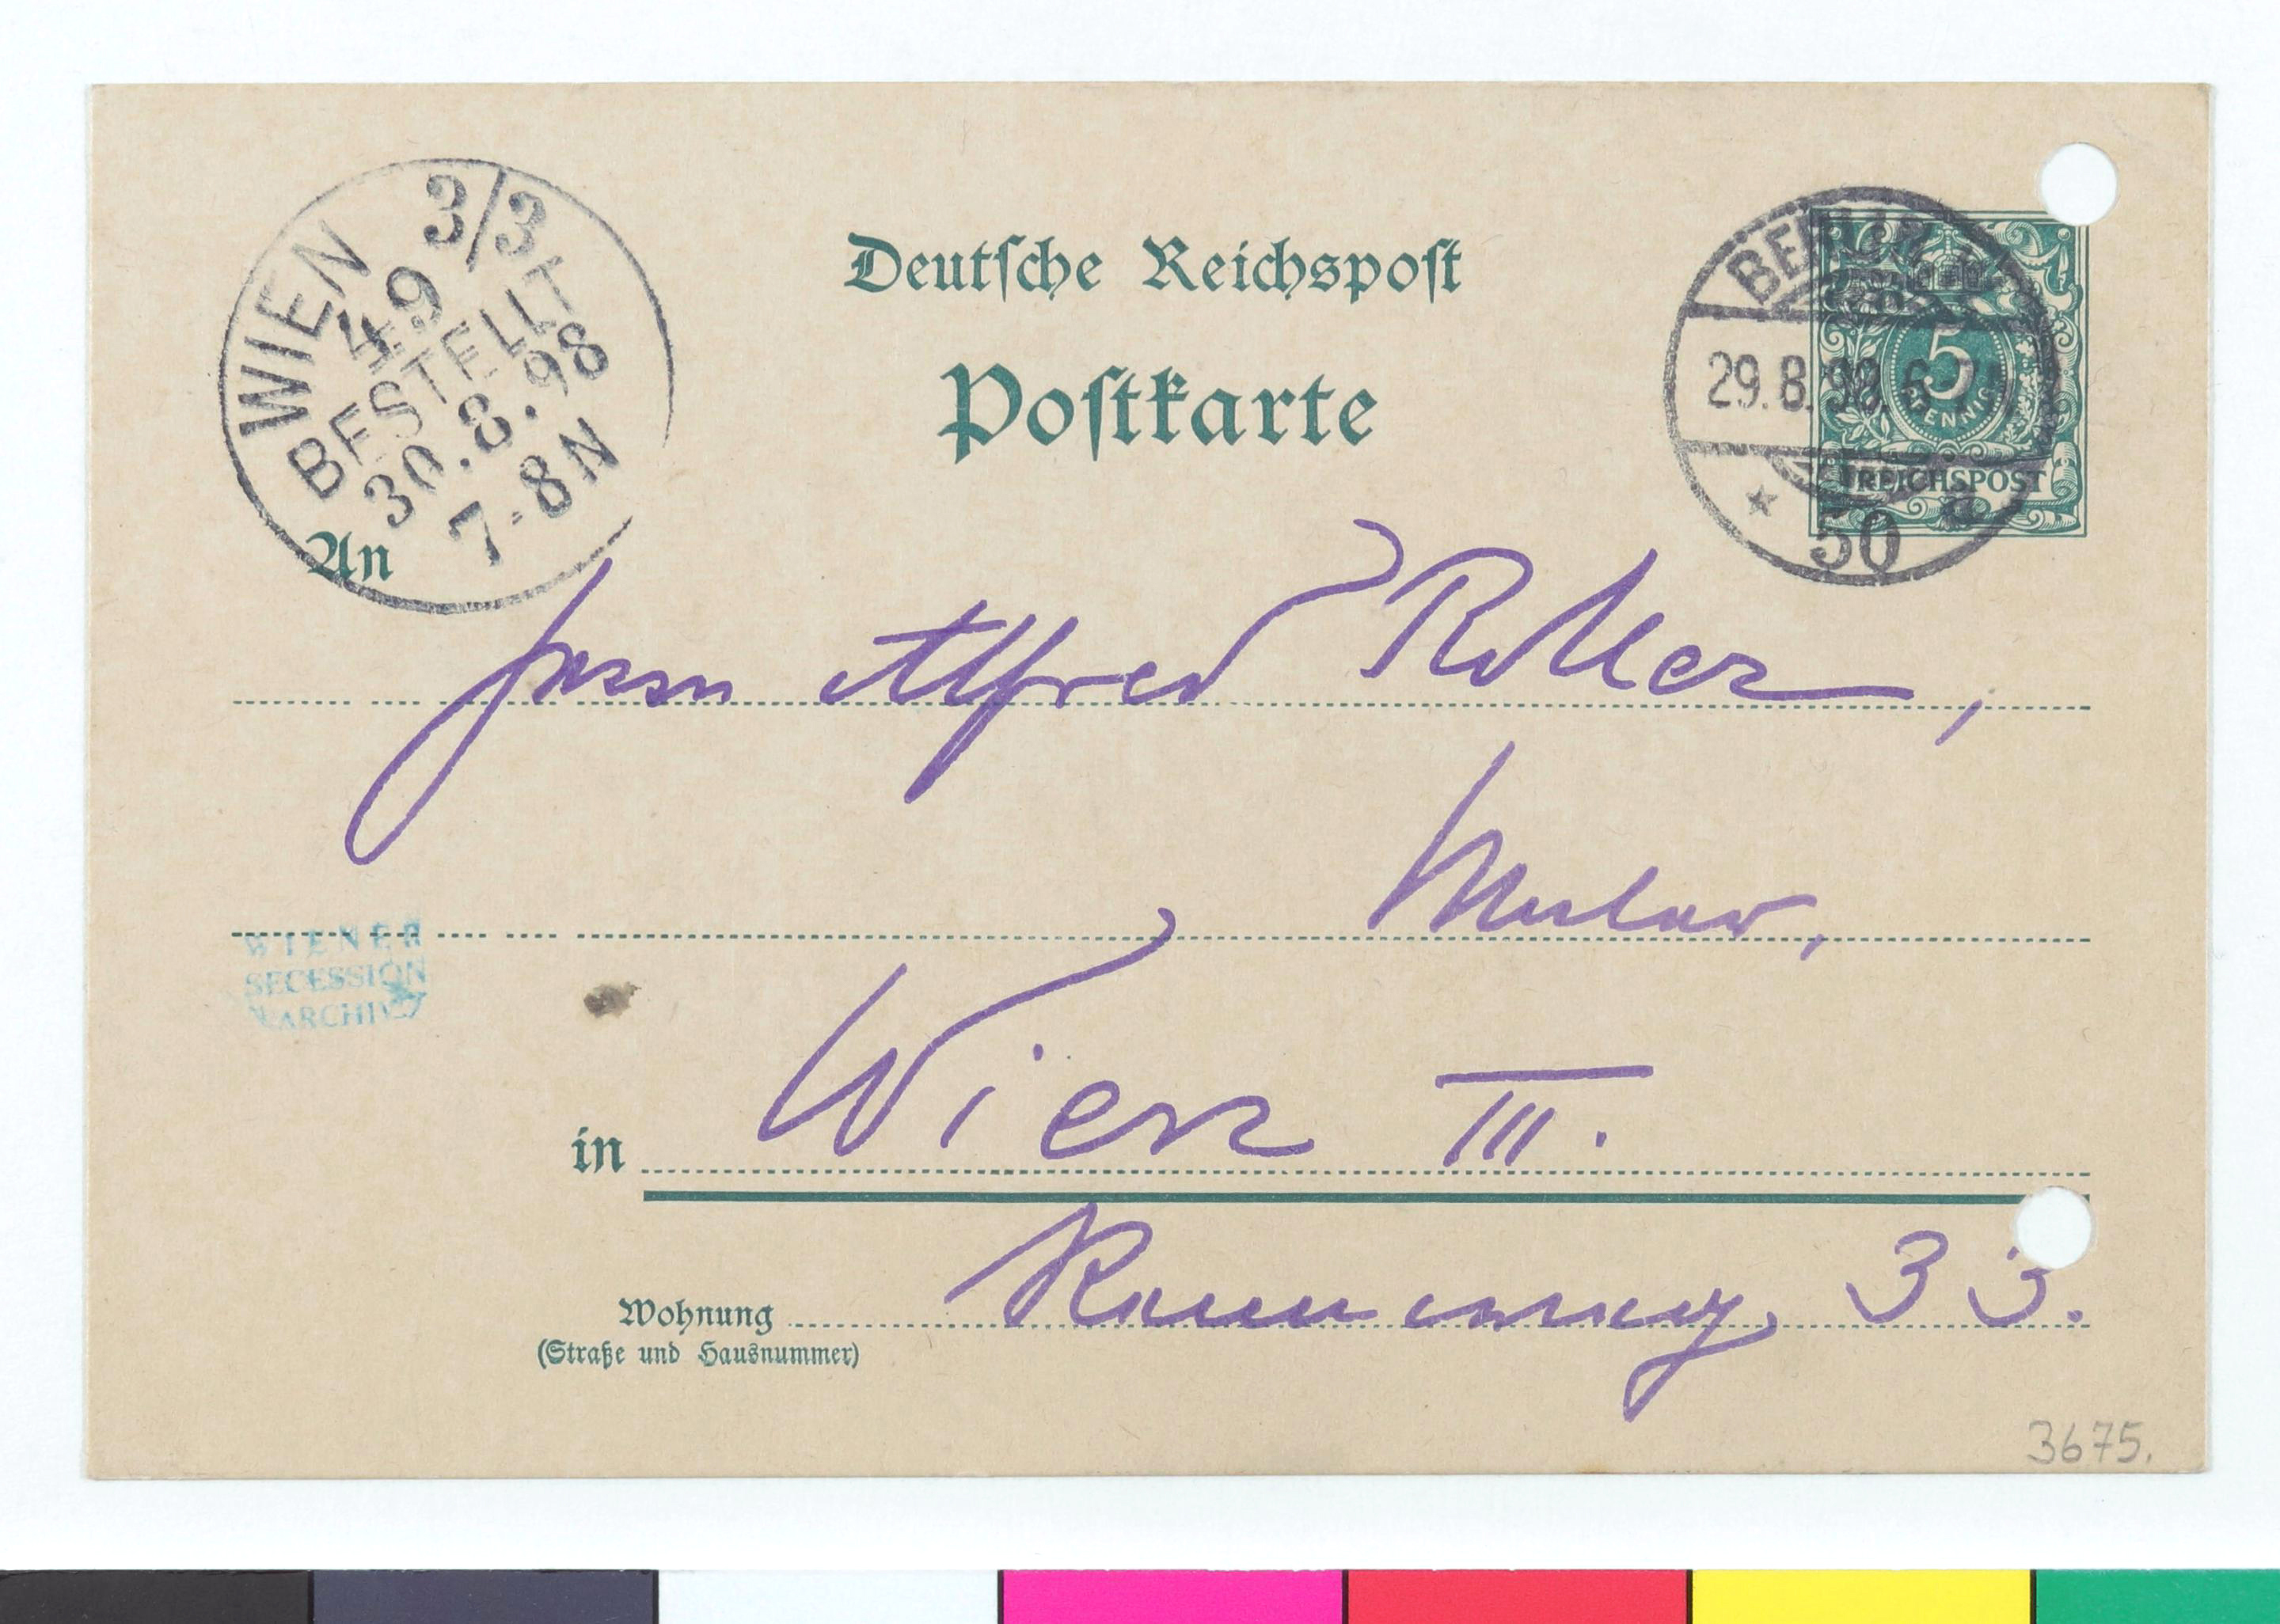 WIEN 3/3
49
BESTELLT
30.8.98
7-8N
Deutsche Reichspost
Postkarte
BERLIN W
29.8.98. 6-7
* 50 a
5
PFENNIG
REICHSPOST
An
Herrn Alfred Roller,
Maler,
WIENER
SECESSION
ARCHIV
in Wien III.
Wohnung Rennweg 33.
(Straße und Hausnummer)
3675.